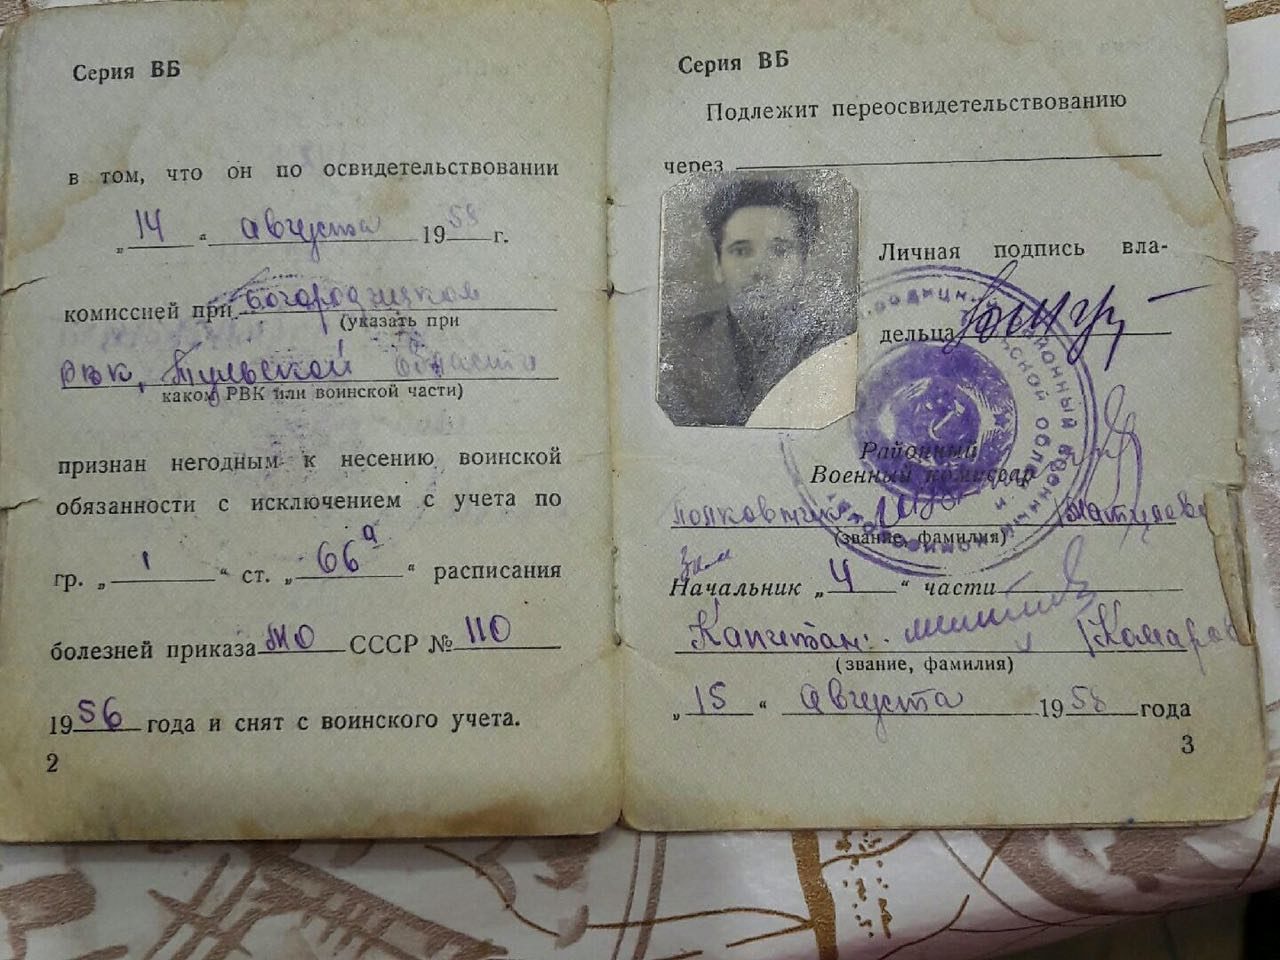 Серия ВБ
в том, что он по освидетельствовании
„ 14 “ августа 1958 г.
комиссией при Богородицком
(указать при
РВК, Тульской области
каком РВК или воинской части)
признан негодным к несению воинской
обязанности с исключением с учета по
гр. „ 1 “ ст. „ 66а “ расписания
болезней приказа МО СССР № 110
1956 года и снят с воинского учета.
2
Серия ВБ
Подлежит переосвидетельствованию
через
Личная подпись вла-
дельца
Районный
Военный комиссар
полковник
(звание, фамилия)
Начальник „ 4 “ части
Капитан: (Комаров
(звание, фамилия)
„ 15 “ августа 1958 года
3